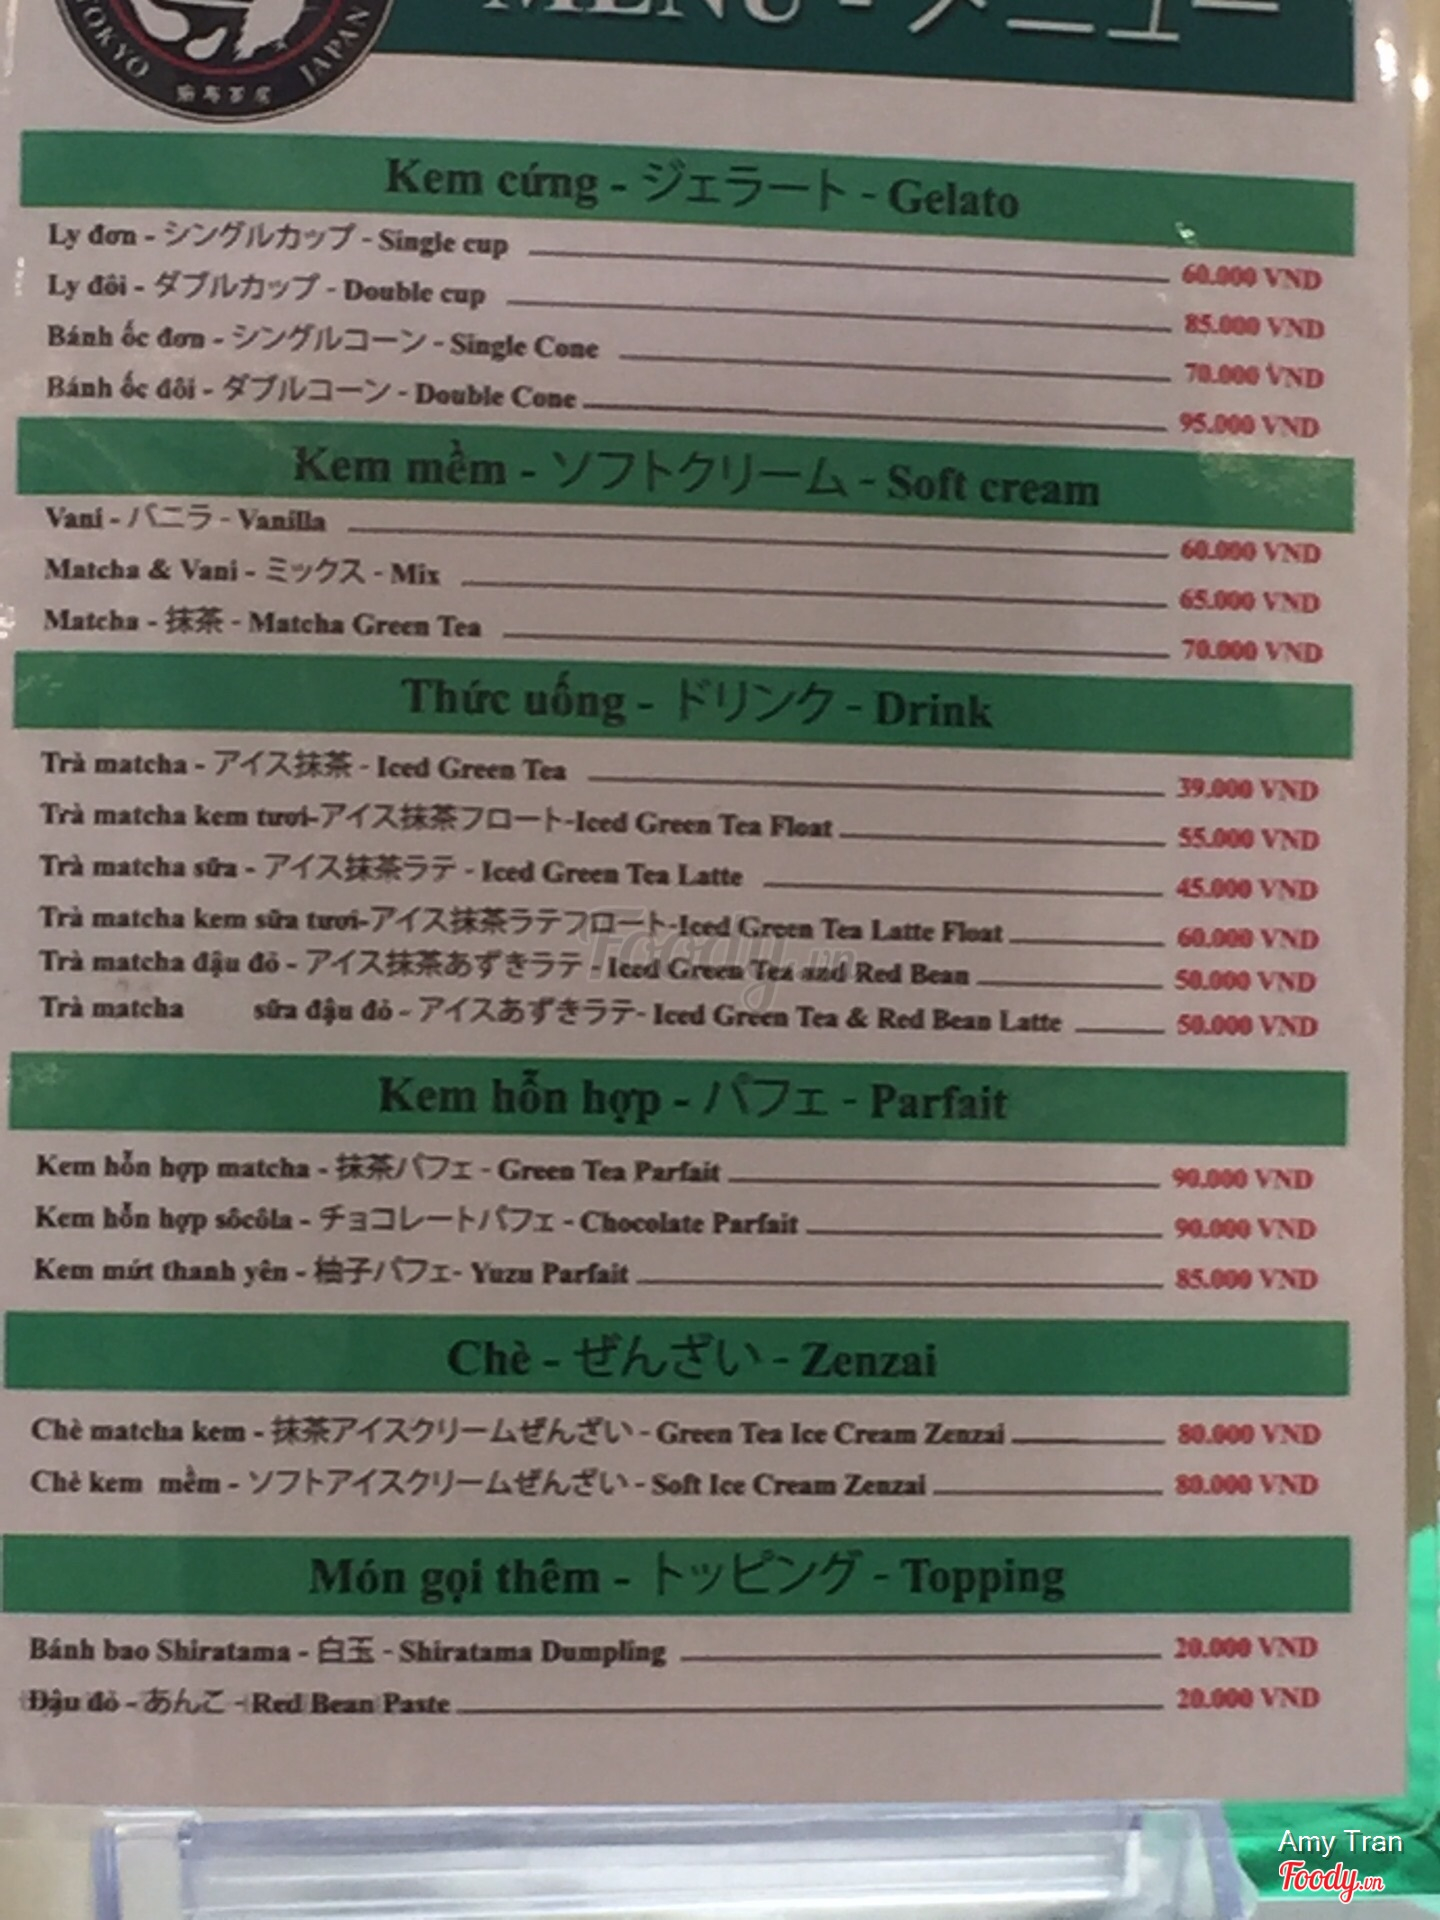 MENU - メニュー
TOKYO JAPAN
Kem cứng - ジェラート - Gelato
Ly đơn - シングルカップ - Single cup 60.000 VND
Ly đôi - ダブルカップ - Double cup 85.000 VND
Bánh ốc đơn - シングルコーン - Single Cone 70.000 VND
Bánh ốc đôi - ダブルコーン - Double Cone 95.000 VND
Kem mềm - ソフトクリーム - Soft cream
Vani - バニラ - Vanilla 60.000 VND
Matcha & Vani - ミックス - Mix 65.000 VND
Matcha - 抹茶 - Matcha Green Tea 70.000 VND
Thức uống - ドリンク - Drink
Trà matcha - アイス抹茶 - Iced Green Tea 39.000 VND
Trà matcha kem tươi-アイス抹茶フロート-Iced Green Tea Float 55.000 VND
Trà matcha sữa - アイス抹茶ラテ - Iced Green Tea Latte 45.000 VND
Trà matcha kem sữa tươi-アイス抹茶ラテフロート-Iced Green Tea Latte Float 60.000 VND
Trà matcha đậu đỏ - アイス抹茶あずきラテ - Iced Green Tea and Red Bean 50.000 VND
Trà matcha sữa đậu đỏ - アイスあずきラテ- Iced Green Tea & Red Bean Latte 50.000 VND
Kem hỗn hợp - パフェ - Parfait
Kem hỗn hợp matcha - 抹茶パフェ - Green Tea Parfait 90.000 VND
Kem hỗn hợp sôcôla - チョコレートパフェ - Chocolate Parfait 90.000 VND
Kem mứt thanh yên - 柚子パフェ- Yuzu Parfait 85.000 VND
Chè - ぜんざい - Zenzai
Chè matcha kem - 抹茶アイスクリームぜんざい - Green Tea Ice Cream Zenzai 80.000 VND
Chè kem mềm - ソフトアイスクリームぜんざい - Soft Ice Cream Zenzai 80.000 VND
Món gọi thêm - トッピング - Topping
Bánh bao Shiratama - 白玉 - Shiratama Dumpling 20.000 VND
Đậu đỏ - あんこ - Red Bean Paste 20.000 VND
Foody.vn
Amy Tran
Foody.vn